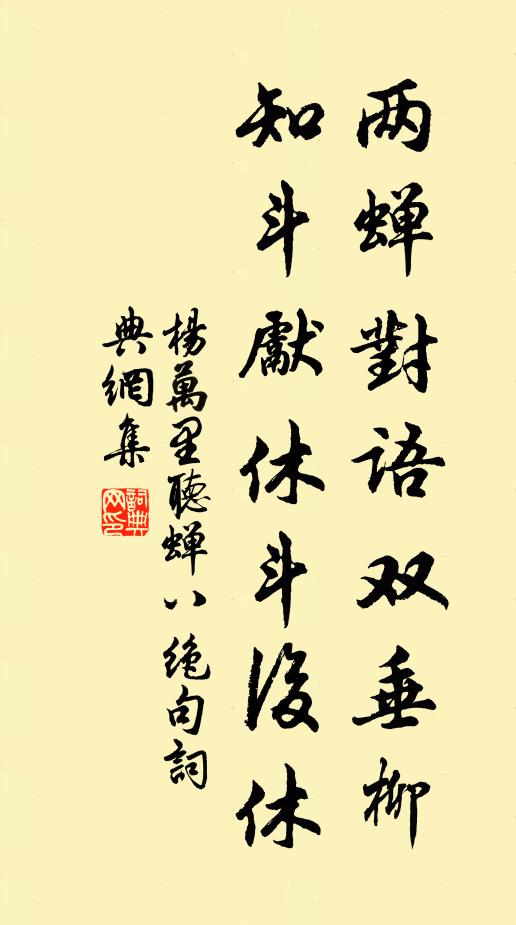 两蝉對语双垂柳
知斗獻休斗後休
楊萬里聽蝉八绝句詞
典網集
詞典网印